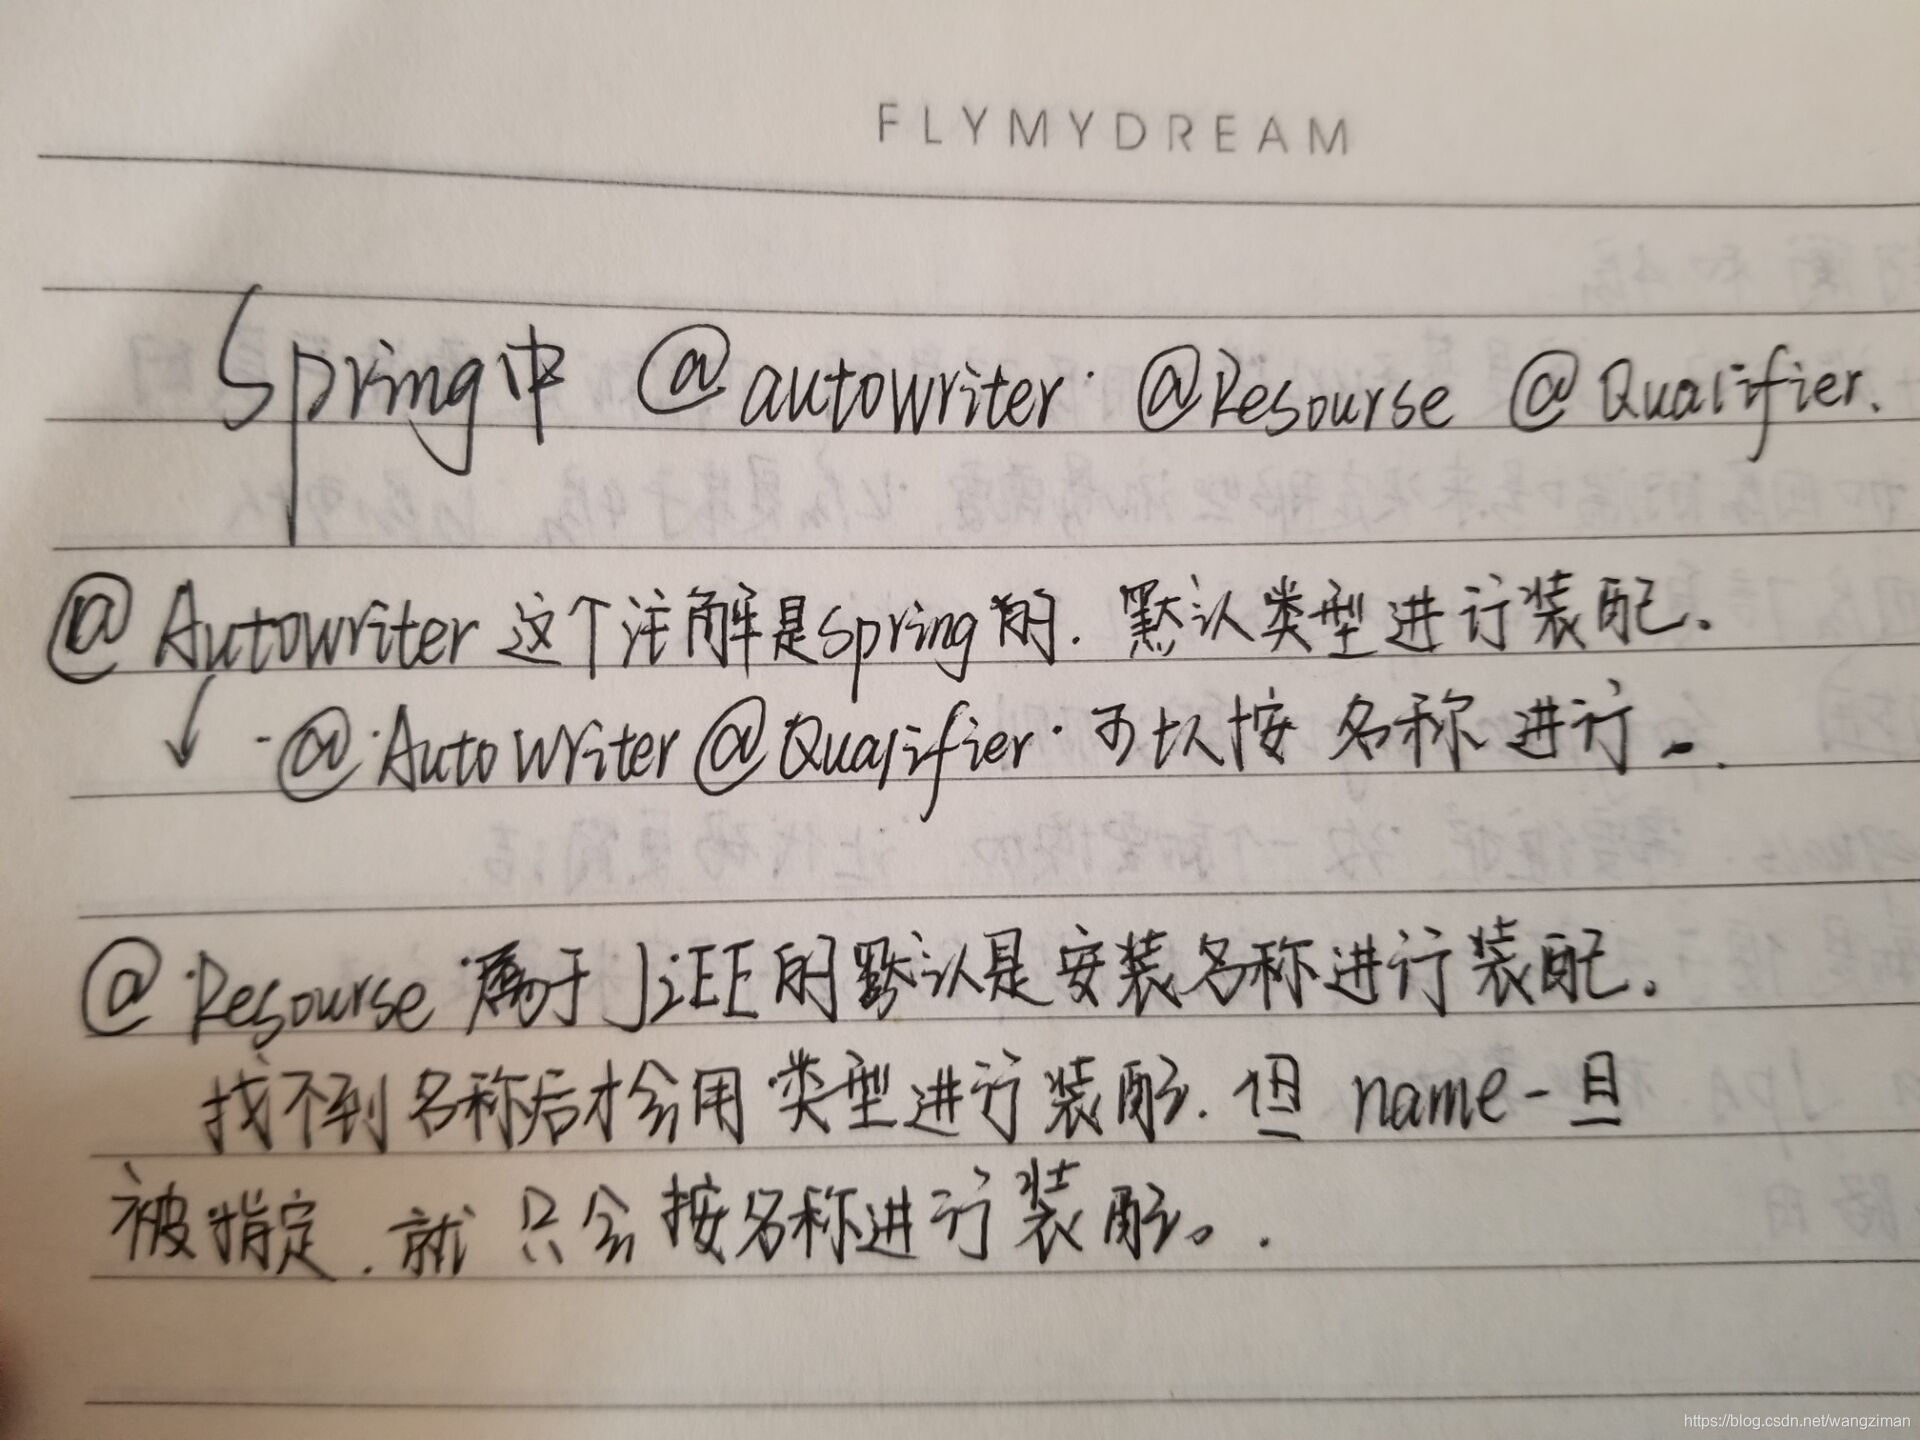 FLYMYDREAM
Spring中 @autowriter @Resourse @Qualifier.
@Autowriter 这个注解是spring的. 默认类型进行装配.
- @AutoWriter @Qualifier 可以按 名称 进行 -.
@Resourse 属于J2EE的默认是安装名称进行装配.
找不到名称后才会用类型进行装配. 但 name一旦
被指定. 就 只会 按名称进行装配。.
https://blog.csdn.net/wangziman